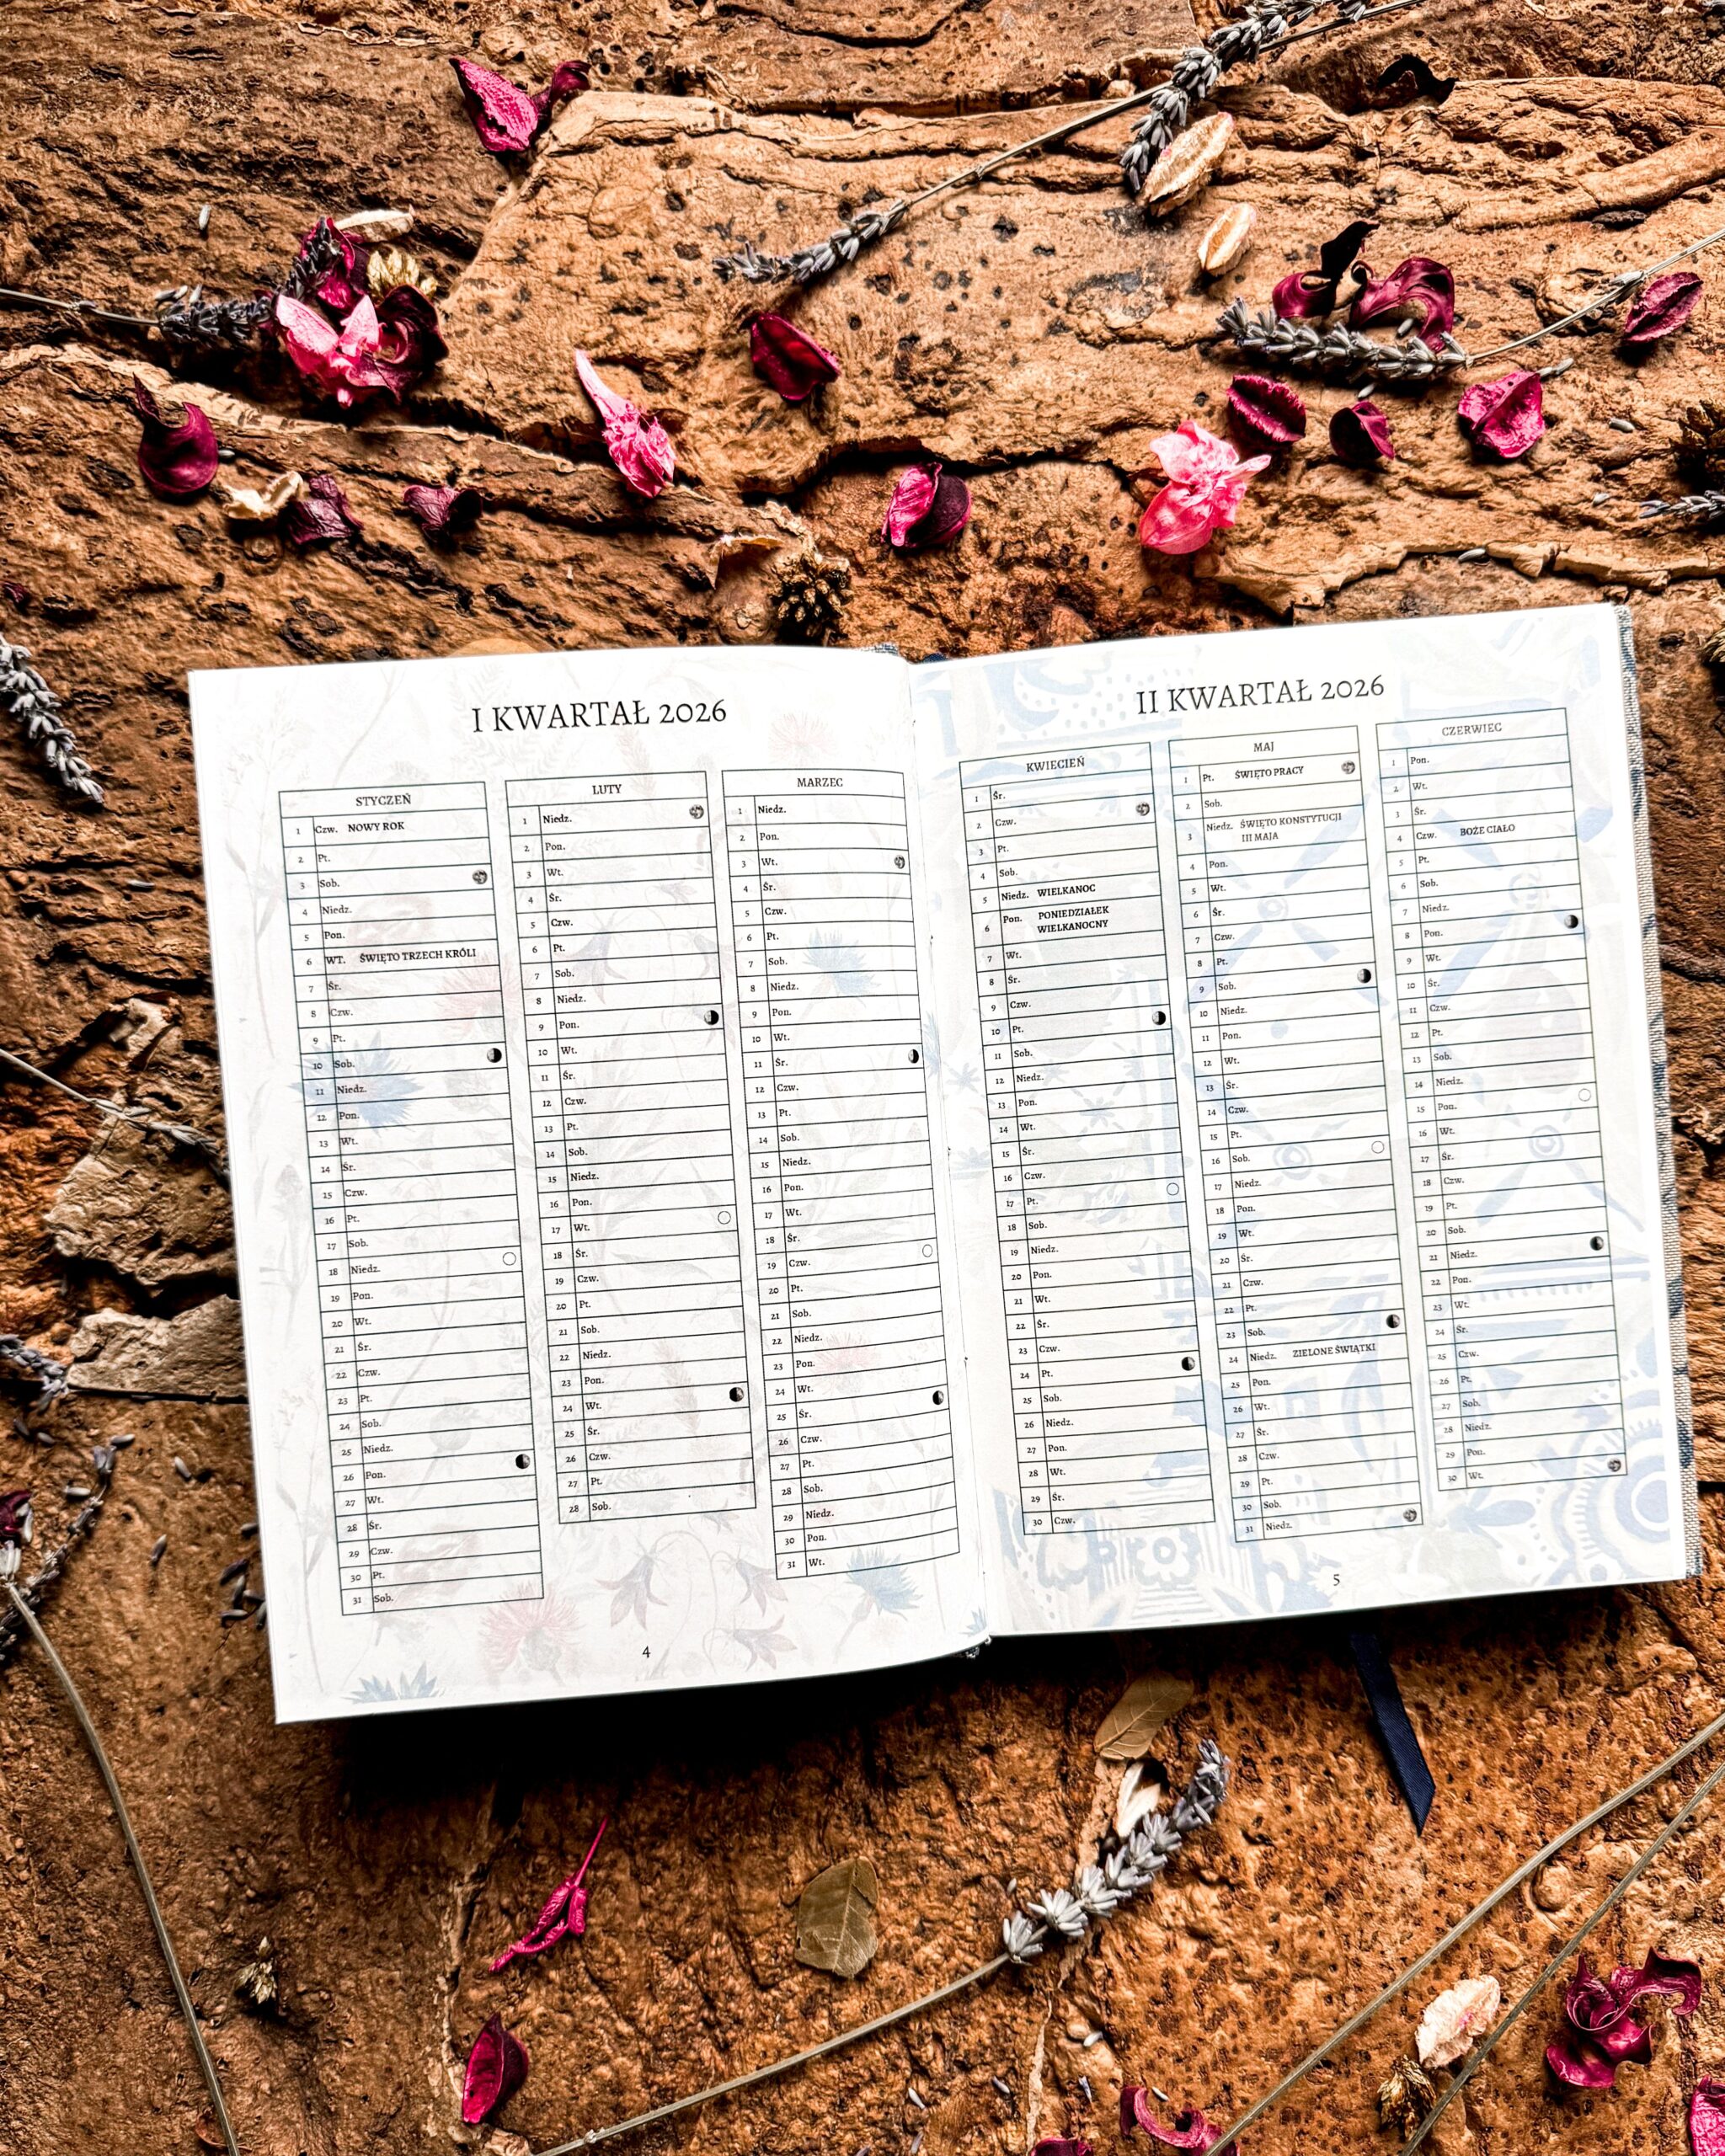 I KWARTAŁ 2026
STYCZEŃ
1 Czw. NOWY ROK
2 Pt.
3 Sob.
4 Niedz.
5 Pon.
6 WT. ŚWIĘTO TRZECH KRÓLI
7 Śr.
8 Czw.
9 Pt.
10 Sob.
11 Niedz.
12 Pon.
13 Wt.
14 Śr.
15 Czw.
16 Pt.
17 Sob.
18 Niedz.
19 Pon.
20 Wt.
21 Śr.
22 Czw.
23 Pt.
24 Sob.
25 Niedz.
26 Pon.
27 Wt.
28 Śr.
29 Czw.
30 Pt.
31 Sob.
LUTY
1 Niedz.
2 Pon.
3 Wt.
4 Śr.
5 Czw.
6 Pt.
7 Sob.
8 Niedz.
9 Pon.
10 Wt.
11 Śr.
12 Czw.
13 Pt.
14 Sob.
15 Niedz.
16 Pon.
17 Wt.
18 Śr.
19 Czw.
20 Pt.
21 Sob.
22 Niedz.
23 Pon.
24 Wt.
25 Śr.
26 Czw.
27 Pt.
28 Sob.
MARZEC
1 Niedz.
2 Pon.
3 Wt.
4 Śr.
5 Czw.
6 Pt.
7 Sob.
8 Niedz.
9 Pon.
10 Wt.
11 Śr.
12 Czw.
13 Pt.
14 Sob.
15 Niedz.
16 Pon.
17 Wt.
18 Śr.
19 Czw.
20 Pt.
21 Sob.
22 Niedz.
23 Pon.
24 Wt.
25 Śr.
26 Czw.
27 Pt.
28 Sob.
29 Niedz.
30 Pon.
31 Wt.
4
II KWARTAŁ 2026
KWIECIEŃ
1 Śr.
2 Czw.
3 Pt.
4 Sob.
5 Niedz. WIELKANOC
6 Pon. PONIEDZIAŁEK
WIELKANOCNY
7 Wt.
8 Śr.
9 Czw.
10 Pt.
11 Sob.
12 Niedz.
13 Pon.
14 Wt.
15 Śr.
16 Czw.
17 Pt.
18 Sob.
19 Niedz.
20 Pon.
21 Wt.
22 Śr.
23 Czw.
24 Pt.
25 Sob.
26 Niedz.
27 Pon.
28 Wt.
29 Śr.
30 Czw.
MAJ
1 Pt. ŚWIĘTO PRACY
2 Sob.
3 Niedz. ŚWIĘTO KONSTYTUCJI
III MAJA
4 Pon.
5 Wt.
6 Śr.
7 Czw.
8 Pt.
9 Sob.
10 Niedz.
11 Pon.
12 Wt.
13 Śr.
14 Czw.
15 Pt.
16 Sob.
17 Niedz.
18 Pon.
19 Wt.
20 Śr.
21 Czw.
22 Pt.
23 Sob.
24 Niedz. ZIELONE ŚWIĄTKI
25 Pon.
26 Wt.
27 Śr.
28 Czw.
29 Pt.
30 Sob.
31 Niedz.
CZERWIEC
1 Pon.
2 Wt.
3 Śr.
4 Czw. BOŻE CIAŁO
5 Pt.
6 Sob.
7 Niedz.
8 Pon.
9 Wt.
10 Śr.
11 Czw.
12 Pt.
13 Sob.
14 Niedz.
15 Pon.
16 Wt.
17 Śr.
18 Czw.
19 Pt.
20 Sob.
21 Niedz.
22 Pon.
23 Wt.
24 Śr.
25 Czw.
26 Pt.
27 Sob.
28 Niedz.
29 Pon.
30 Wt.
5